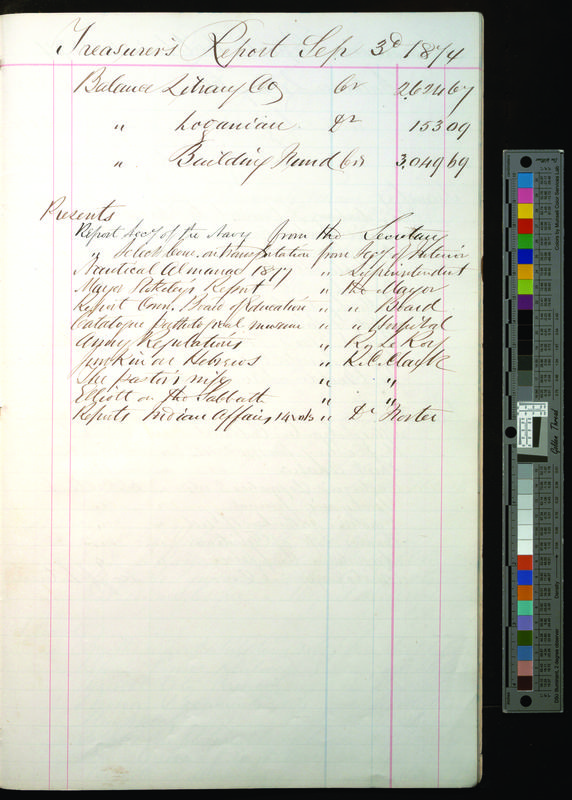 Treasurer's Report Sep. 3d 1874
Balance Library Co Cr 2,624 67
" Loganian Dr 153 09
" Building Fund Cr 3,049 69
Presents
Report Secy of the Navy from the Secretary
" Select Com. on Transportation from Secy of Interior
Nautical Almanac 1877 " Superintendent
Mayor Stokley's Report " the Mayor
Report Com. Board of Education " " Board
Catalogue Pathological museum " " Hospital
Army Regulations "
Junkin on Hebrews " K. C. Claytk
The Pastor's wife " "
Elliott on the Sabbath " "
Reports Indian Affairs 14 vols " Dr Foster